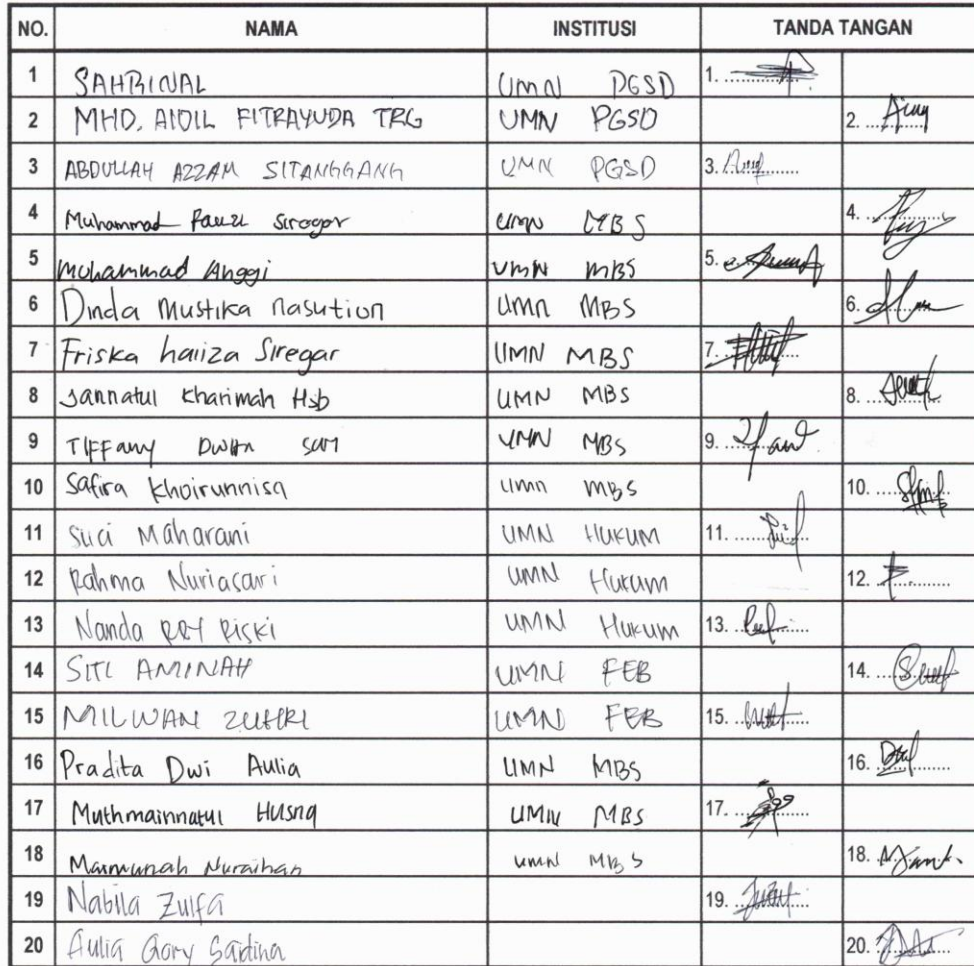 NO. NAMA INSTITUSI TANDA TANGAN
1 SAHRINAL UMN PGSD 1.
2 MHD. AIDIL FITRAYUDA TRG UMN PGSD 2.
3 ABDULLAH AZZAM SITANGGANG UMN PGSD 3.
4 Muhammad Fauzi Siregar UMN MBS 4.
5 Muhammad Anggi UMN MBS 5.
6 Dinda Mustika nasution UMN MBS 6.
7 Friska haiiza Siregar UMN MBS 7.
8 Jannatul Kharimah Hsb UMN MBS 8.
9 TIFFany UMN MBS 9.
10 Safira Khoirunnisa UMN MBS 10.
11 Suci Maharani UMN HUKUM 11.
12 Rahma Nuriasari UMN Hukum 12.
13 Nanda Riski UMN Hukum 13.
14 SITI AMINAH UMN FEB 14.
15 MILWAN ZUHRI UMN FEB 15.
16 Pradita Dwi Aulia UMN MBS 16.
17 Muthmainnatul Husna UMN MBS 17.
18 Maimunah Nuraihan UMN MBS 18.
19 Nabila Zulfa 19.
20 Aulia Gory Saidina 20.